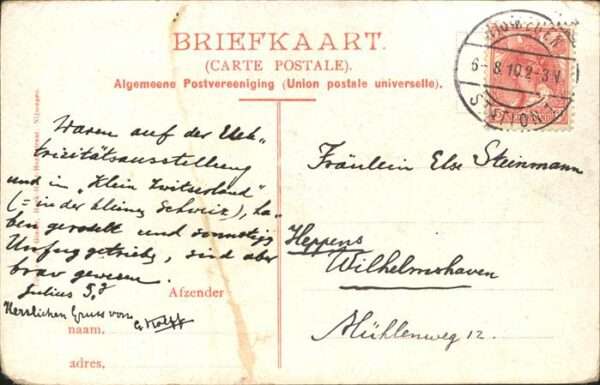 BRIEFKAART.
(CARTE POSTALE).
Algemeene Postvereeniging (Union postale universelle).
6-8.10.2-3V
STATION
Waren auf der Elek-
trizitätsausstellung
und in "Klein Zwitserland"
(= in der kleinen Schweiz), ha-
ben gerodelt und sonstigen
Unfug getrieben, sind aber
brav gewesen.
Julius
Herzlichen Gruss von
Afzender
naam,
adres,
Fräulein Else Steinmann
Heppens
Wilhelmshaven
Mühlenweg 12.